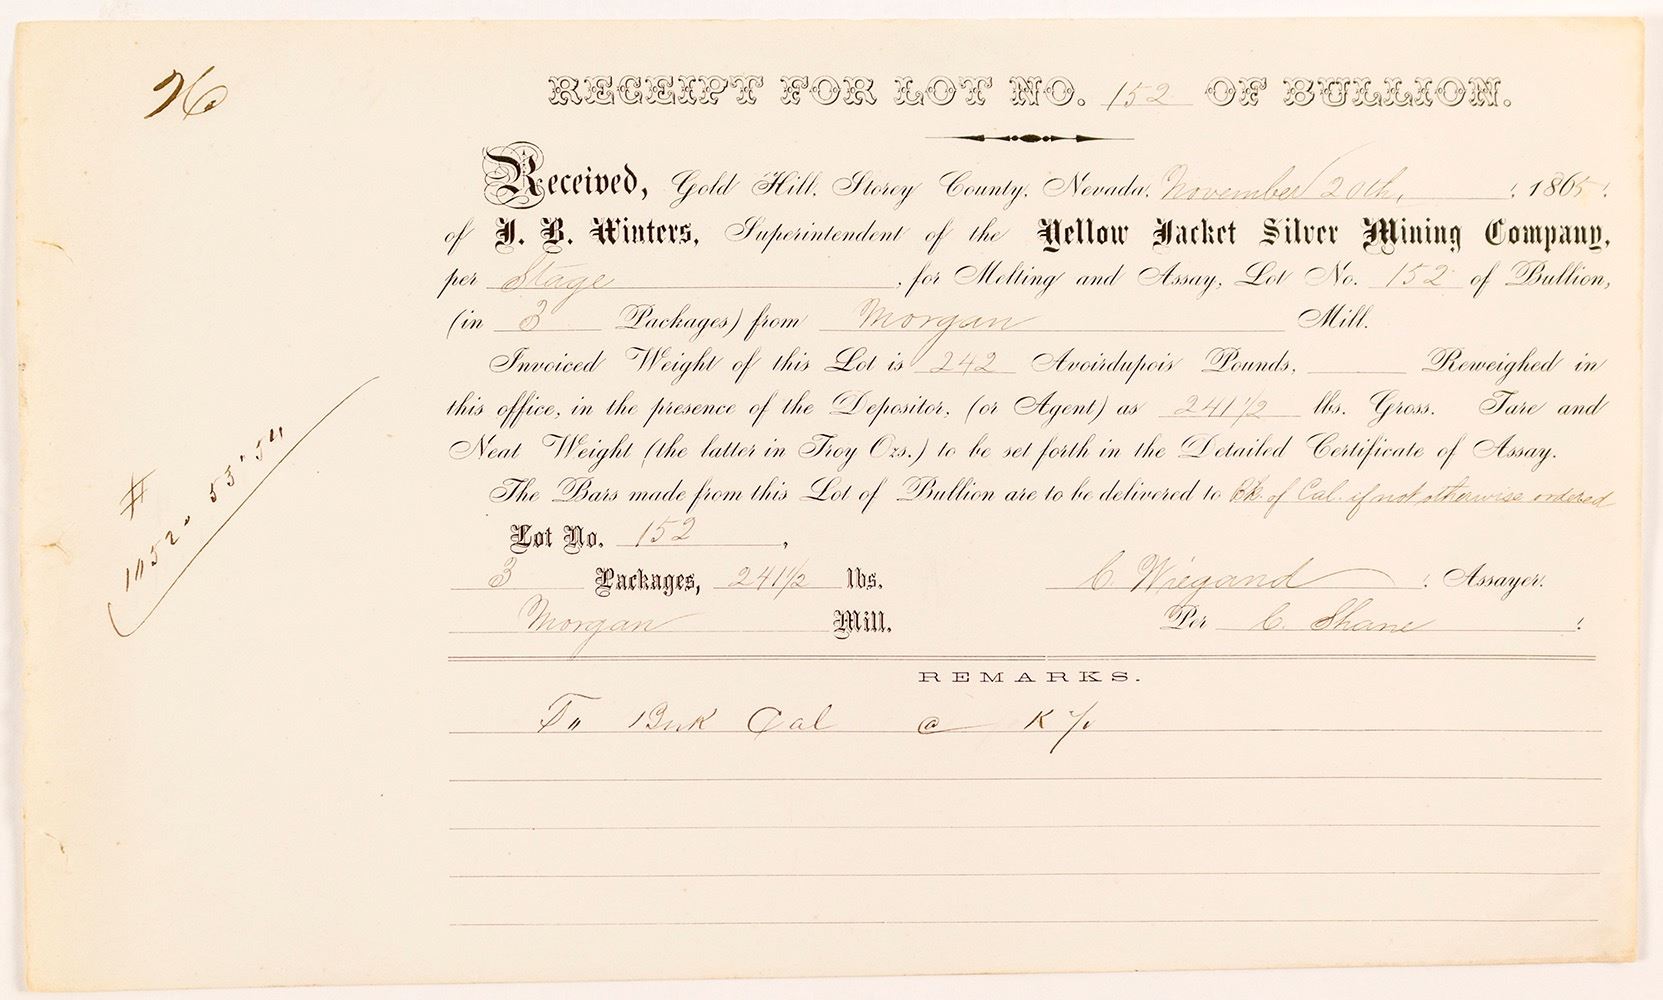 26
RECEIPT FOR LOT NO. 152 OF BULLION.
Received, Gold Hill, Storey County, Nevada, November 20th, 1865.
of J. B. Winters, Superintendent of the Yellow Jacket Silver Mining Company,
per Stage, for Melting and Assay, Lot No. 152 of Bullion,
(in 3 Packages) from Morgan Mill.
Invoiced Weight of this Lot is 242 Avoirdupois Pounds, Reweighed in
this office, in the presence of the Depositor, (or Agent) as 241 1/2 lbs. Gross. Tare and
Neat Weight (the latter in Troy Ozs.) to be set forth in the Detailed Certificate of Assay.
The Bars made from this Lot of Bullion are to be delivered to Bk. of Cal. if not otherwise ordered
Lot No. 152,
3 Packages, 241 1/2 lbs. C. Wiegand, Assayer.
Morgan Mill. Per C. Shane
# 1152 - 53 - 54
REMARKS.
To Bnk Cal @